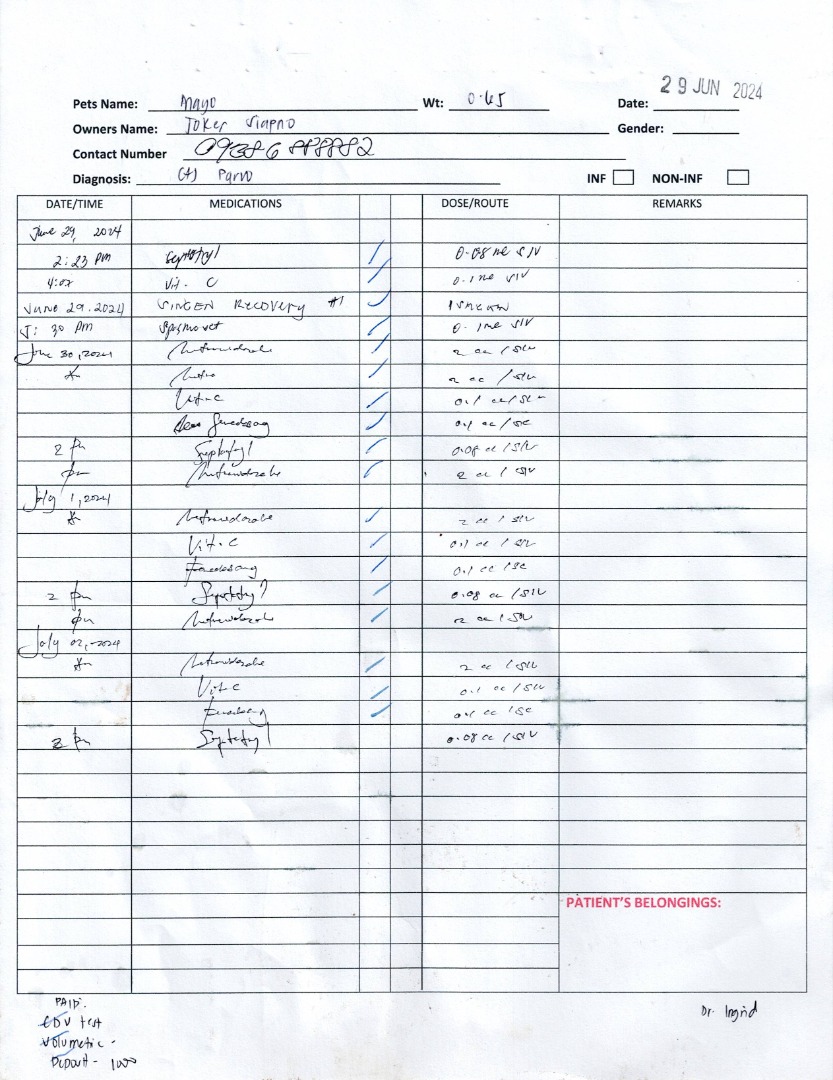 29 JUN 2024
Pets Name: Mayo Wt: 0.65 Date:
Owners Name: Joker Gender:
Contact Number
Diagnosis: (+) Parvo INF NON-INF
DATE/TIME MEDICATIONS DOSE/ROUTE REMARKS
June 29, 2024
2:23 PM Septotryl 0.08 ml SIV
4:02 Vit. C 0.1 ml SIV
June 29.2024 VINCEN RECOVERY #1
5:30 PM Spasmovet 0.1 ml SIV
June 30, 2024 2 cc / SIV
Metro 2 cc / SIV
Vit-C 0.1 cc / SIV
0.1 cc / SC
2 pm Septotryl 0.08 cc / SIV
pm 2 cc / SIV
July 1, 2024
2 cc / SIV
Vit. C 0.1 cc / SIV
0.1 cc / SC
2 pm Septotryl 0.08 cc / SIV
pm 2 cc / SIV
July 02, 2024
2 cc / SIV
Vit-C 0.1 cc / SIV
0.1 cc / SC
2 pm Septotryl 0.08 cc / SIV
PATIENT'S BELONGINGS:
PAID.
CDV test
Volumetric -
Deposit - 1000
Dr. Ingrid